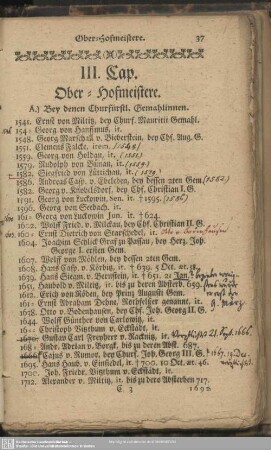 Ober-Hofmeistere. 37
III. Cap.
Ober-Hofmeistere.
A.) Bey denen Churfürstl. Gemahlinnen.
1541. Ernst von Miltitz, bey Churf. Mauritii Gemahl.
154- Georg von
1548. Georg Marschall v. Bieberstein, bey Chf. Aug. G.
1551. Clemens Fulcke, item. (1548)
1559. Georg von Holdau, it. (1551)
1579. Rudolph von Bünau, it. (1559)
1582. Siegfried von Lüttichau, it. (1579)
1586. Andreas Casp. v. Ebeleben, bey dessen 2ten Gem. (1582)
1582. Georg v. Kiboelsdorf, bey Chf. Christian I. G.
1591. Georg von Luckowin, sen. it. †1595. (1586)
1596. Georg von Seebach. it.
160- Georg von Luckowin Jun. it. †624.
1602. Wolff Fried. v. Milckau, bey Chf. Christian II. G.
160- Ernst Dietrich von Starschedel, it.
1604. Joachim Schlick Graf zu Passau, bey Hertz. Joh.
Georgs I. ersten Gem.
1607. Wolff von Möhlen, bey dessen 2ten Gem.
1608. Hans Casp. v. Körbitz, it. †639. 5 Oct. æt. 18.
1639. Hans Sittem. v. Bernstein, it. †651. 21 Jan.
1651. Haubold v. Miltitz, it. bis zu deren Absterb. 659.
1638. Erich von Röden, bey Printz Augusti Gem.
164- Ernst Abraham Dehn, Rothfelser genannt, it.
1658. Otto v. Bodenhausen, bey Chf. Joh. Georg II. G.
1644. Wolff Günther von Carlowitz, it.
166- Christoph Vitzthum v. Eckstädt, it.
1670. Gustav Carl Freyherr v. Racknitz, it. 21. Sept. 1666.
168- Andr. Adrian v. Borgk, bis zu deren Abst. 687.
1666. Cajus v. Rumor, bey Churf. Joh. Georg III. G.
1695. Hans Haub. v. Einsiedel, it. †700. 10 Oct. æt. 46.
1700. Joh. Friedr. Vitzthum v. Eckstädt, it.
1712. Alexander v. Miltitz, it. bis zu dero Absterben 717.
C 3 1692.